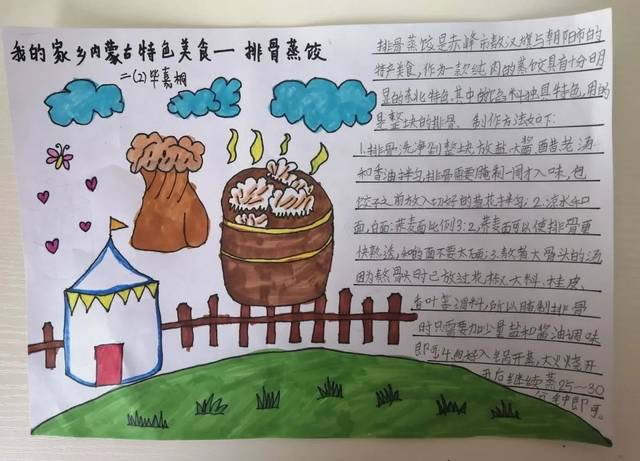 我的家乡内蒙古特色美食一排骨蒸饺
二(2)毕嘉桐
排骨蒸饺是赤峰市敖汉旗与朝阳市的
特产美食,作为一款纯肉的蒸饺具有十分明
显的东北特色.其中的馅料独具特色,用的
是整块的排骨。制作方法如下:
1.排骨洗净剁整块放盐大酱醋老汤
和香油拌匀,排骨需要腌制一周才入味,包
饺子之前放入切好的葱花拌匀;2.凉水和
面,白面:荞麦面比例3:2,荞麦面可以使排骨更
快熟透,和的面不要太硬;3.敖大骨头的汤
因为熬骨头时已放过花椒、大料、桂皮、
香叶等调料,所以腌制排骨
时只需要加少量盐和酱油调味
即可;4.包好入笼屉开蒸,大火烧开
开后继续蒸25~30
分钟即可。